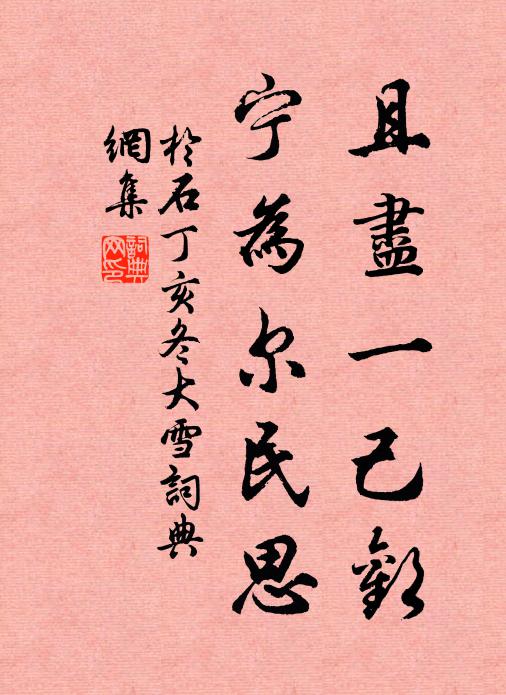 且盡一己歡
宁為尔民思
於石丁亥冬大雪詞典
網集
詞典
网印